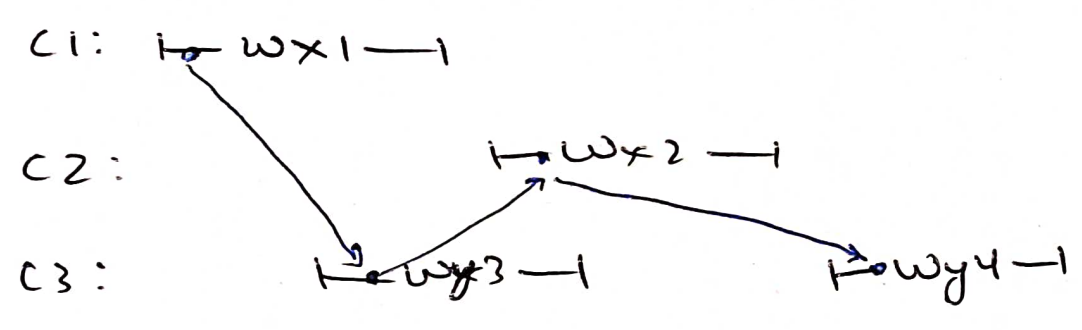 C1: wx1
C2: wx2
C3: wy3 wy4